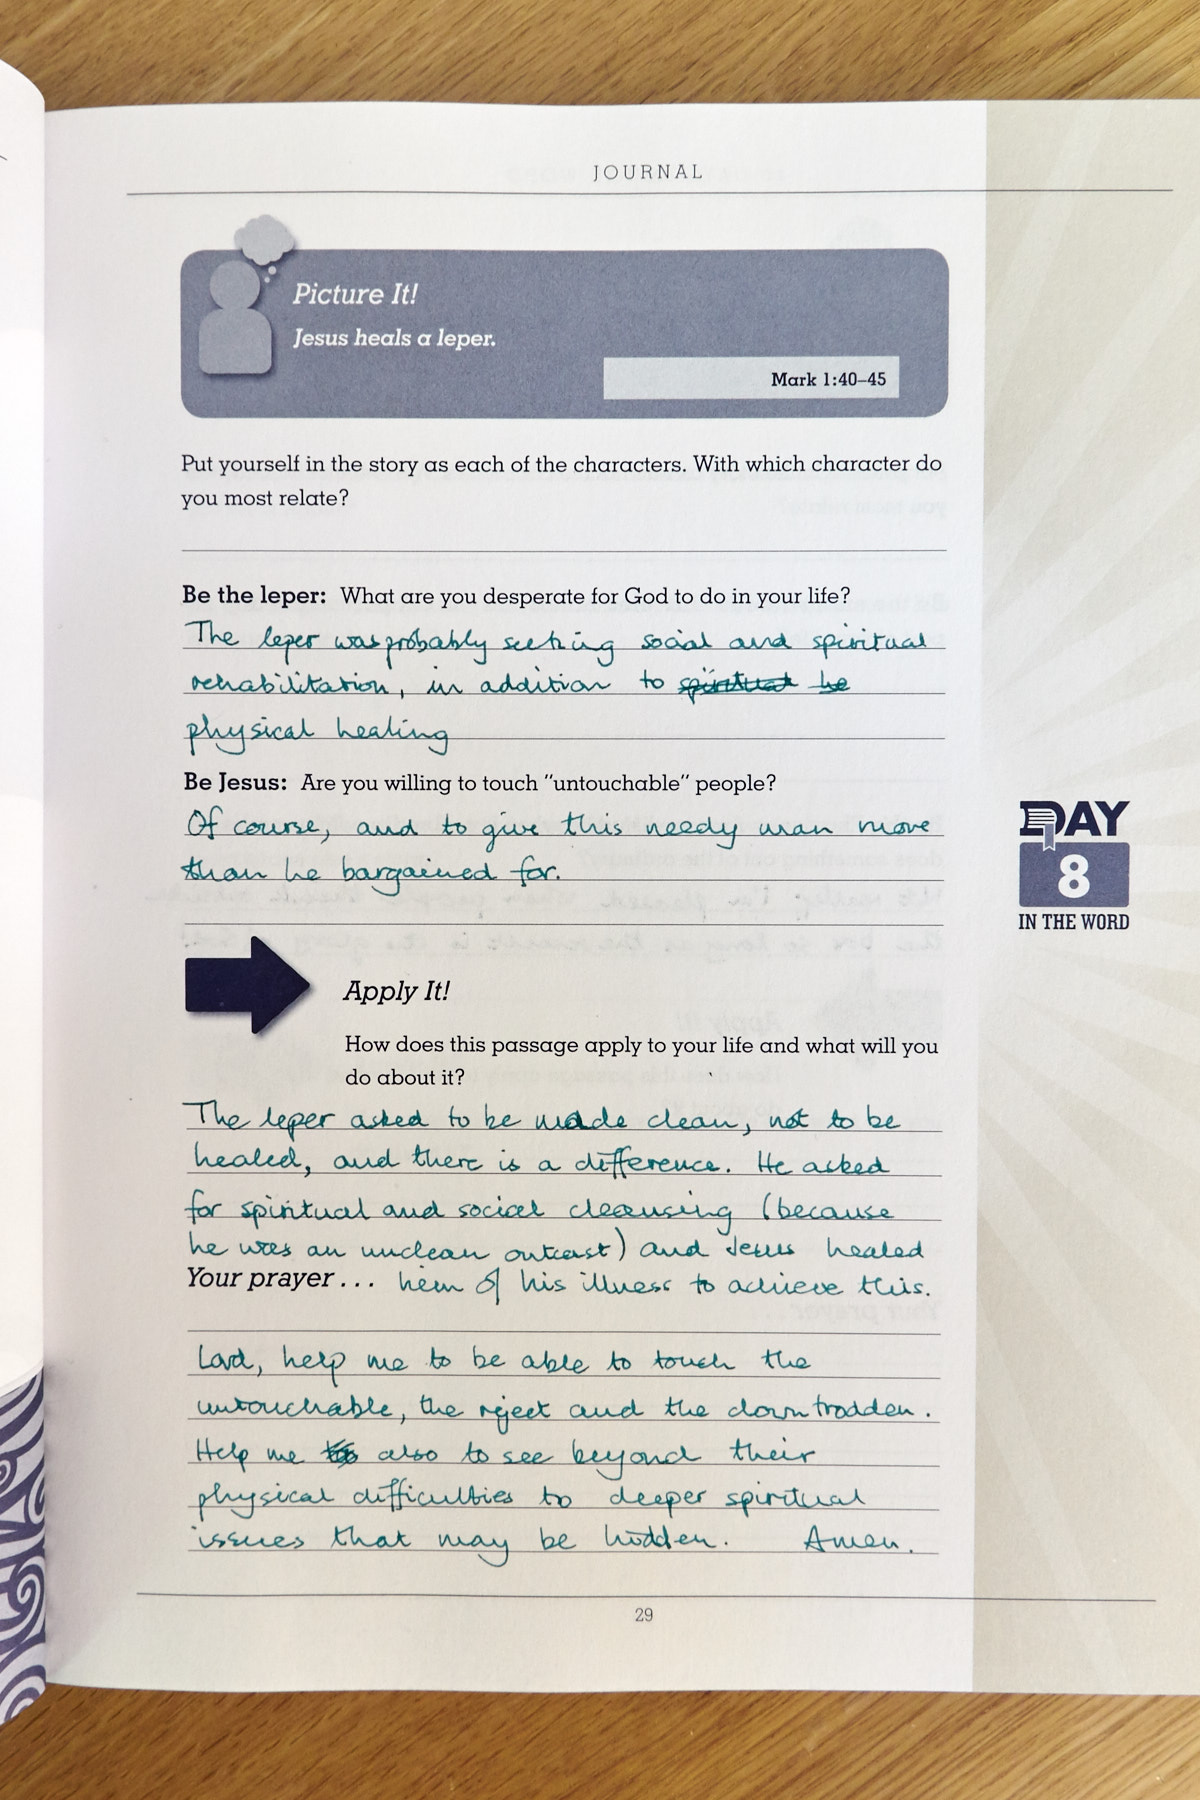 JOURNAL
Picture It!
Jesus heals a leper.
Mark 1:40–45
Put yourself in the story as each of the characters. With which character do
you most relate?
Be the leper: What are you desperate for God to do in your life?
The leper was probably seeking social and spiritual
rehabilitation, in addition to spiritual he
physical healing
Be Jesus: Are you willing to touch "untouchable" people?
Of course, and to give this needy man more
than he bargained for.
DAY
8
IN THE WORD
Apply It!
How does this passage apply to your life and what will you
do about it?
The leper asked to be made clean, not to be
healed, and there is a difference. He asked
for spiritual and social cleansing (because
he was an unclean outcast) and Jesus healed
Your prayer . . . him of his illness to achieve this.
Lord, help me to be able to touch the
untouchable, the reject and the downtrodden.
Help me also to see beyond their
physical difficulties to deeper spiritual
issues that may be hidden. Amen.
29